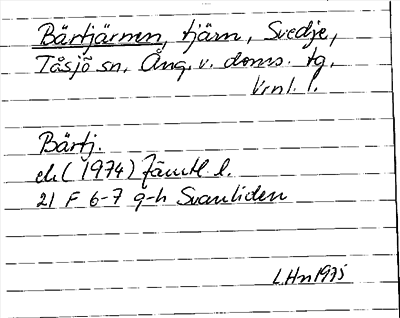 Bärtjärnen, tjärn, Svedje,
Tåsjö sn, Ång. v. doms. tg,
Vrnl. l.
Bärtj.
ek (1974) Jämtl. l.
21 F 6-7 g-h Svanliden
LHn 1975